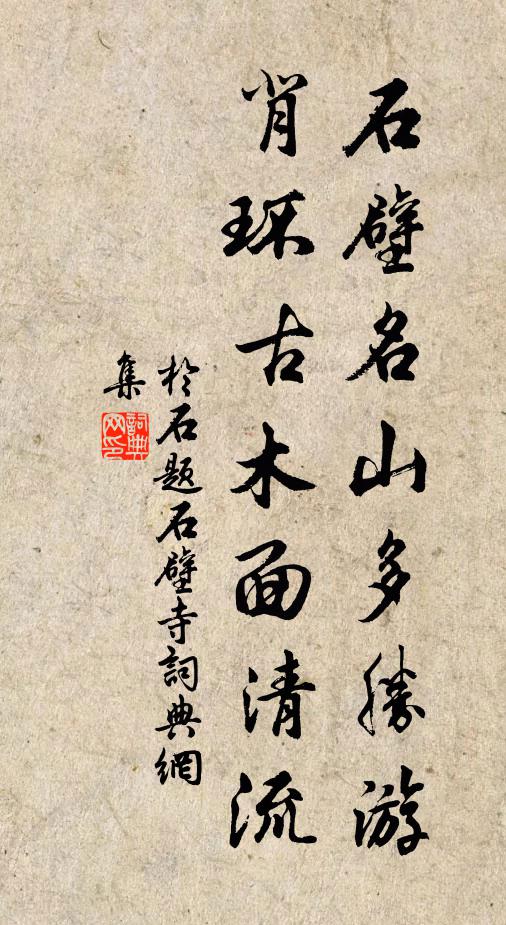 石壁名山多勝游
背环古木面清流
於石題石壁寺詞典網
集
詞典
网印